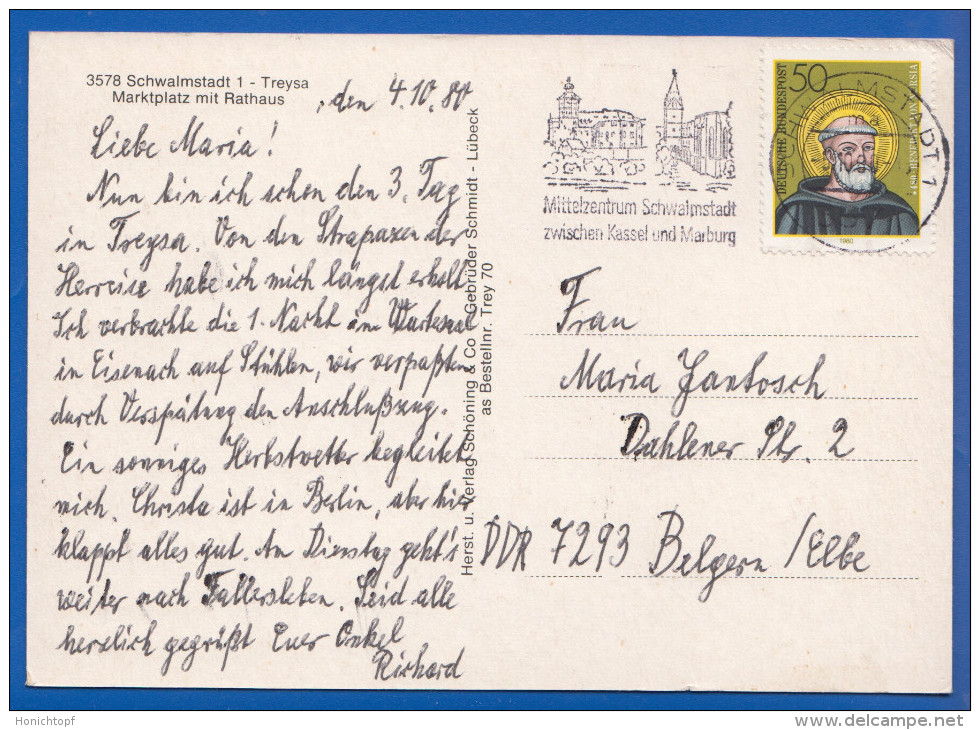 3578 Schwalmstadt 1 - Treysa
Marktplatz mit Rathaus
, den 4.10.80
Liebe Maria!
Nun bin ich schon den 3. Tag
in Treysa. Von den Strapazen der
Herreise habe ich mich längst erholt.
Ich verbrachte die 1. Nacht im Wartesaal
in Eisenach auf Stühlen, wir verpaßten
durch Verspätung den Anschlußzug.
Ein sonniges Herbstwetter begleitet
mich. Christa ist in Berlin, aber hier
klappt alles gut. Am Dienstag geht's
weiter nach Fallersleben. Seid alle
herzlich gegrüßt Euer Onkel
Richard
Herst. u. Verlag Schöning & Co Gebrüder Schmidt - Lübeck
as Bestellnr. Trey 70
Mittelzentrum Schwalmstadt
zwischen Kassel und Marburg
50
DEUTSCHE BUNDESPOST
1980
Frau
Maria Jantosch
Dahlener Str. 2
DDR 7293 Belgern /Elbe
Honichtopf
www.delcampe.net